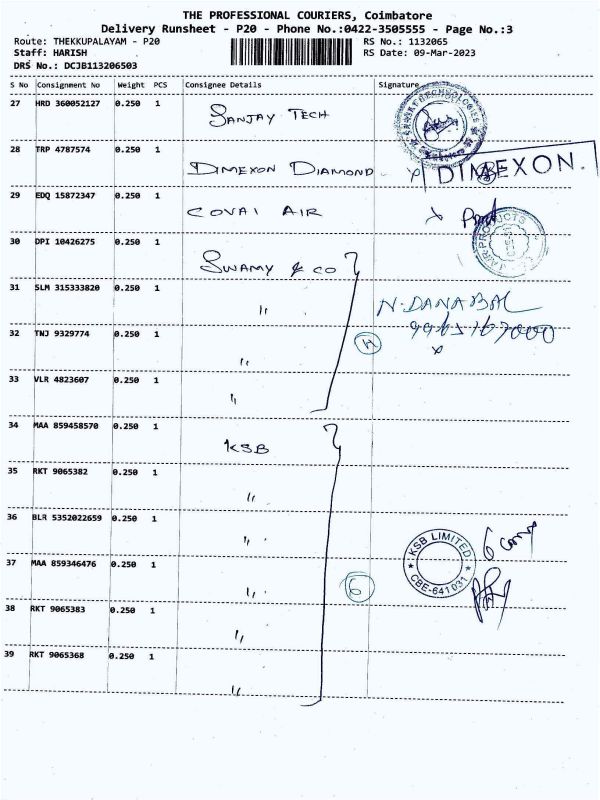 THE PROFESSIONAL COURIERS, Coimbatore
Delivery Runsheet - P20 - Phone No.:0422-3505555 - Page No.:3
Route: THEKKUPALAYAM - P20 RS No.: 1132065
Staff: HARISH RS Date: 09-Mar-2023
DRS No.: DCJB113206503
S No Consignment No Weight PCS Consignee Details Signature
27 HRD 360052127 0.250 1 SANJAY TECH
28 TRP 4787574 0.250 1 DIMEXON DIAMOND DIMEXON.
29 EDQ 15872347 0.250 1 COVAI AIR
30 DPI 10426275 0.250 1 SWAMY & CO
31 SLM 315333820 0.250 1 " N. DANABAL
32 TNJ 9329774 0.250 1 "
33 VLR 4823607 0.250 1 "
34 MAA 859458570 0.250 1 KSB
35 RKT 9065382 0.250 1 "
36 BLR 5352022659 0.250 1 "
KSB LIMITED
CBE-641031
37 MAA 859346476 0.250 1 " 6
38 RKT 9065383 0.250 1 "
39 RKT 9065368 0.250 1 "